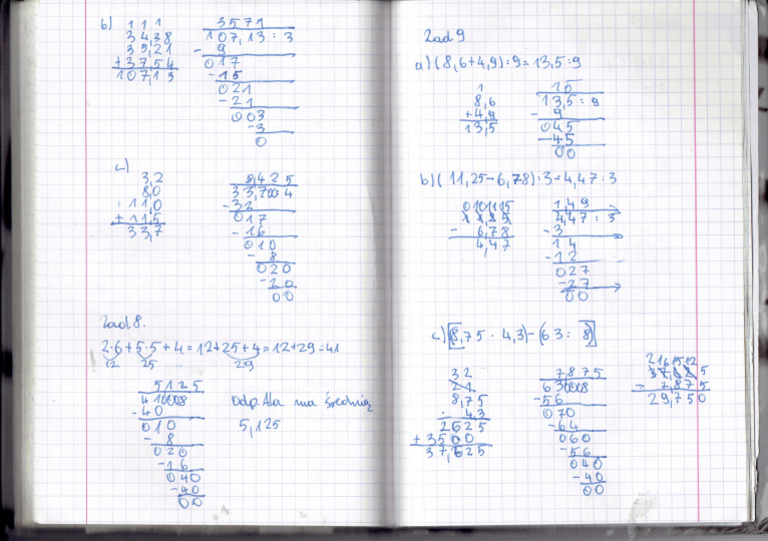 b) 1 1 1
34,38
35,21
+37,54
107,13
3571
107,13 : 3
- 9
017
- 15
021
- 21
003
- 3
0
c)
3,2
8,0
11,0
+ 11,5
33,7
8,425
33,700:4
- 32
017
- 16
010
- 8
020
- 20
00
Zad 8.
2·6+5·5+4=12+25+4=12+29=41
12 25 29
5125
41000:8
- 40
010
- 8
020
- 16
040
- 40
00
Odp. Ala ma średnią
5,125
Zad 9
a) (8,6+4,9):9=13,5:9
1
8,6
+4,9
13,5
15
13,5 : 9
- 9
045
- 45
00
b) (11,25-6,78):3=4,47:3
- 6,78
4,47
1,49
4,47 : 3
- 3
14
- 12
027
- 27
00
c) [8,75 · 4,3]-(63: 8)]
32
21
8,75
· 4,3
2625
+3500
37,625
7,875
63000:8
- 56
070
- 64
060
- 56
040
- 40
00
2 16 15 12
- 7,875
29,750